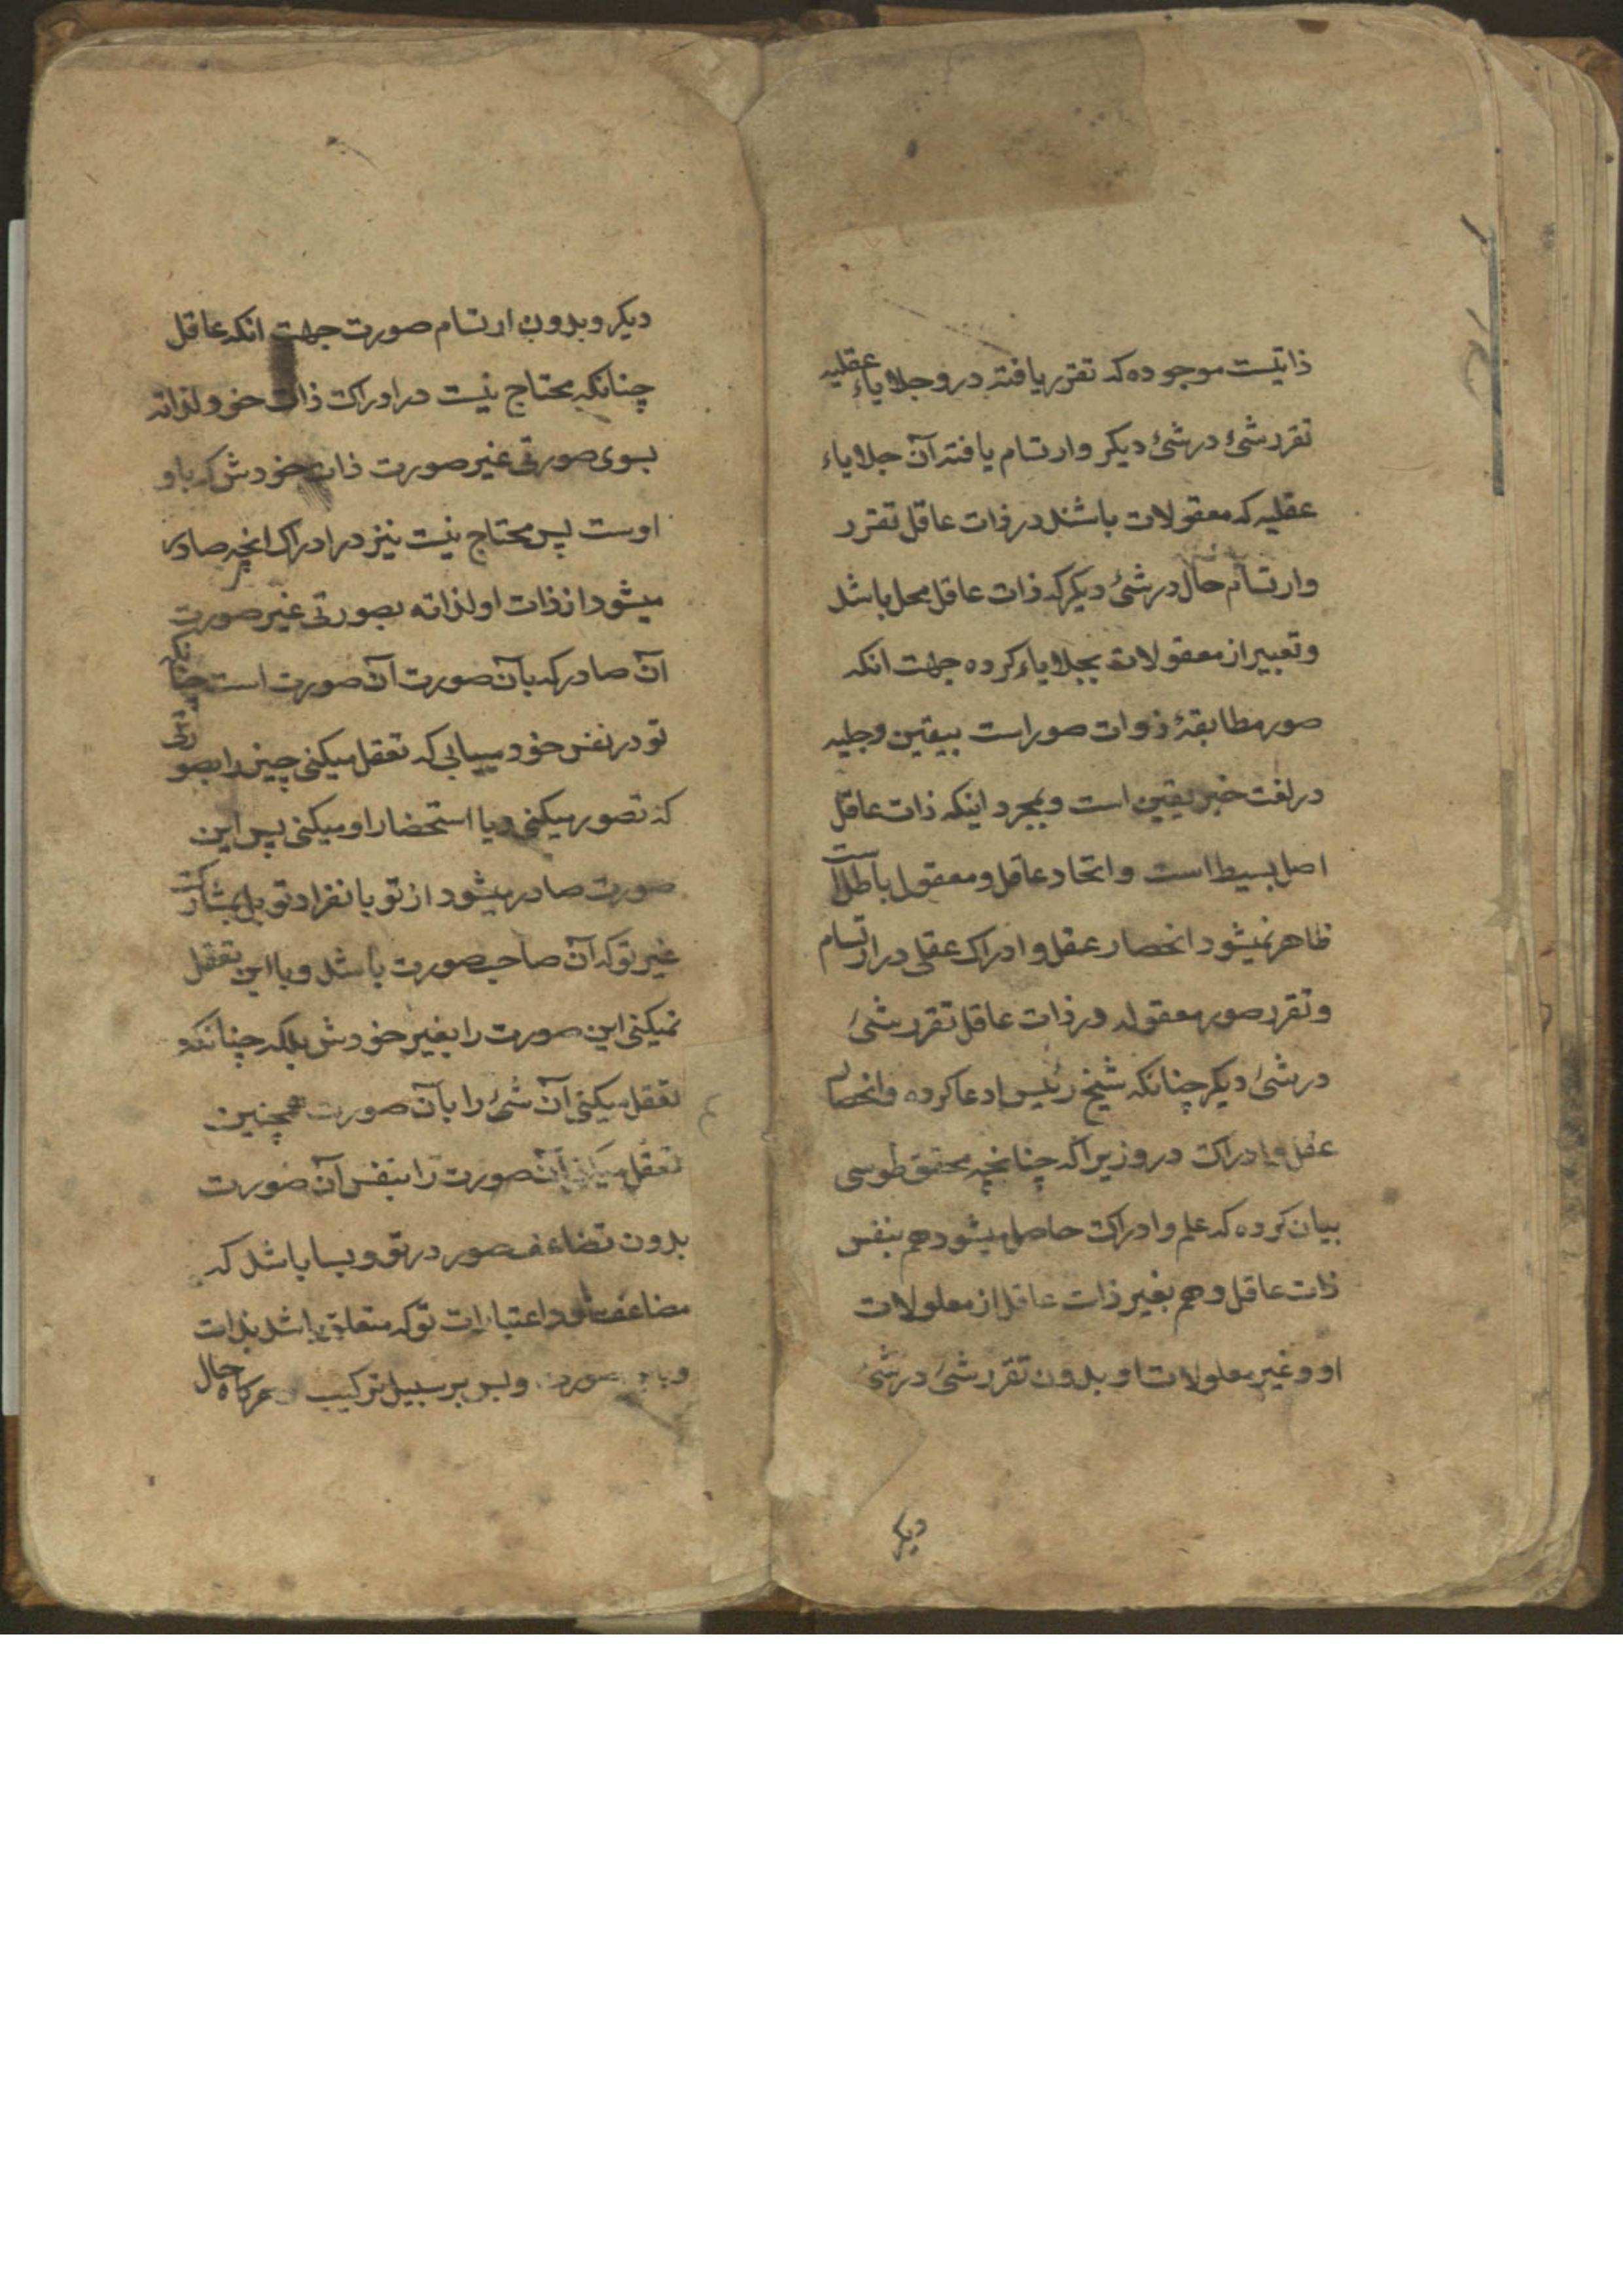 ذاتیست موجوده که تقرر یافته درو جلایاء عقلیه
تقرر شئ در شئ دیکر وارتسام یافته آن جلایاء
عقلیه که معقولات باشند در ذات عاقل تقرر
وارتسام حال در شئ دیکر که ذات عاقل محل باشد
وتعبیر از معقولات بجلایاء کرده جهت انکه
صور مطابقۀ ذوات صور است بیقین وجلیه
در لغت خبر یقین است وبمجرد اینکه ذات عاقل
اصل بسیط است واتحاد عاقل ومعقول باطلست
ظاهر نمیشود انحصار عقل وادراک عقلی در ارتسام
وتقرر صور معقوله در ذات عاقل تقرر شئ
در شئ دیکر چنانکه شیخ رئیس ادعا کرده وانحصار
عقل وادراک درو زیرا که چنانچه محقق طوسی
بیان کرده که علم وادراک حاصل میشود هم بنفس
ذات عاقل وهم بغیر ذات عاقل از معلولات
او وغیر معلولات او بدون تقرر شئ در شئ
دیکر
دیکر وبدون ارتسام صورت جهت انکه عاقل
چنانکه محتاج نیست در ادراک ذات خود لذاته
بسوی صورتی غیر صورت ذات خودش که باو
اوست پس محتاج نیست نیز در ادراک انچه صادر
میشود از ذات او لذاته بصورتی غیر صورت
آن صادر که بآن صورت آن صورت است چنانکه
تو در نفس خود مییابی که تعقل میکنی چیز را بصورتی
که تصور میکنی ویا استحضار او میکنی پس این
صورت صادر میشود از تو بانفراد تو بل بمشارکت
غیر تو که آن صاحب صورت باشد وبا این تعقل
نمیکنی این صورت را بغیر خودش بلکه چنانکه
تعقل میکنی آن شئ را بآن صورت همچنین
تعقل میکنی آن صورت را بنفس آن صورت
بدون تضاعف صور در تو وبسا باشد که
مضاعف شود اعتبارات تو که متعلق باشد بذات
وبآن صورت وبس بر سبیل ترکیب وهرکاه حال